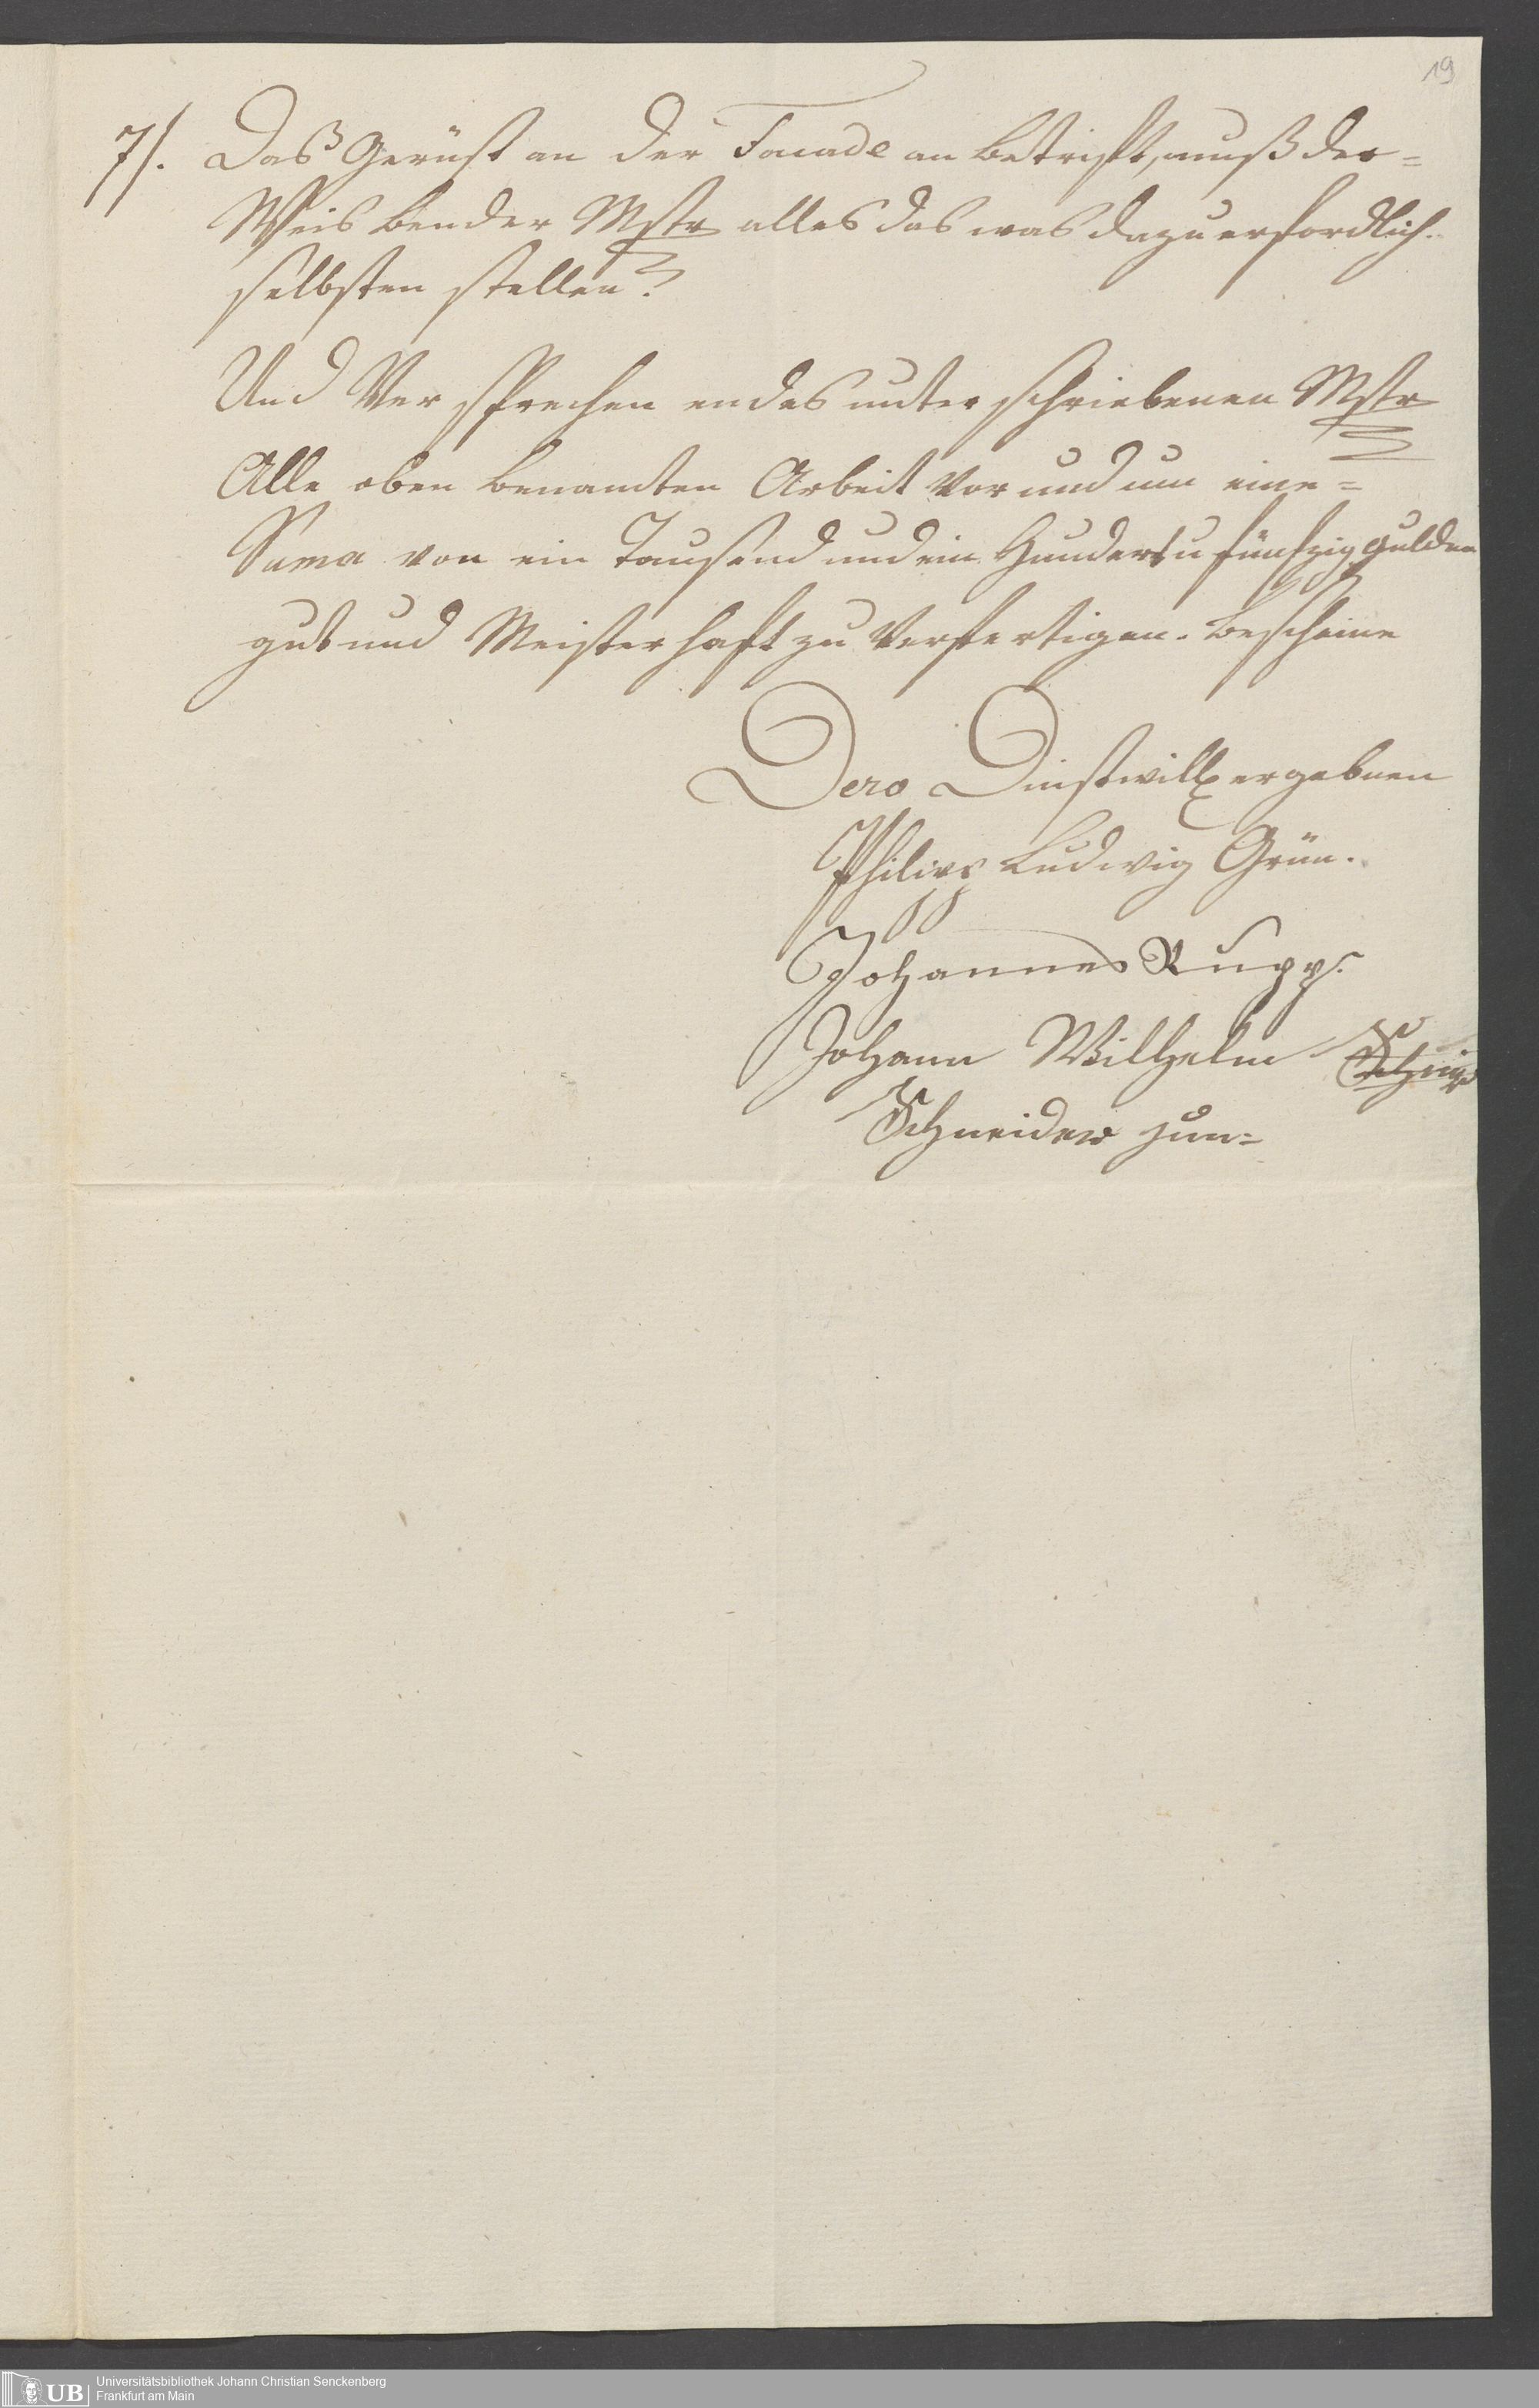 19
7/. Das Gerüst an der Facade an betrifft, muß der=
Weis bender Mstr alles das was dazu erfordlich.
selbsten stellen?
Und Ver sprechen endes unter schriebenen Mstr
Alle oben benamten Arbeit vor und um eine=
Suma von ein Tausend und ein Hundert u fünfzig gulden
gut und Meister haft zu Verfertigen. bescheine
Dero Dinstwillg ergebnen
Philipp Ludwig Grün.
Johannes Rupp.
Johann Wilhelm
Schneider jun=
UB Universitätsbibliothek Johann Christian Senckenberg
Frankfurt am Main